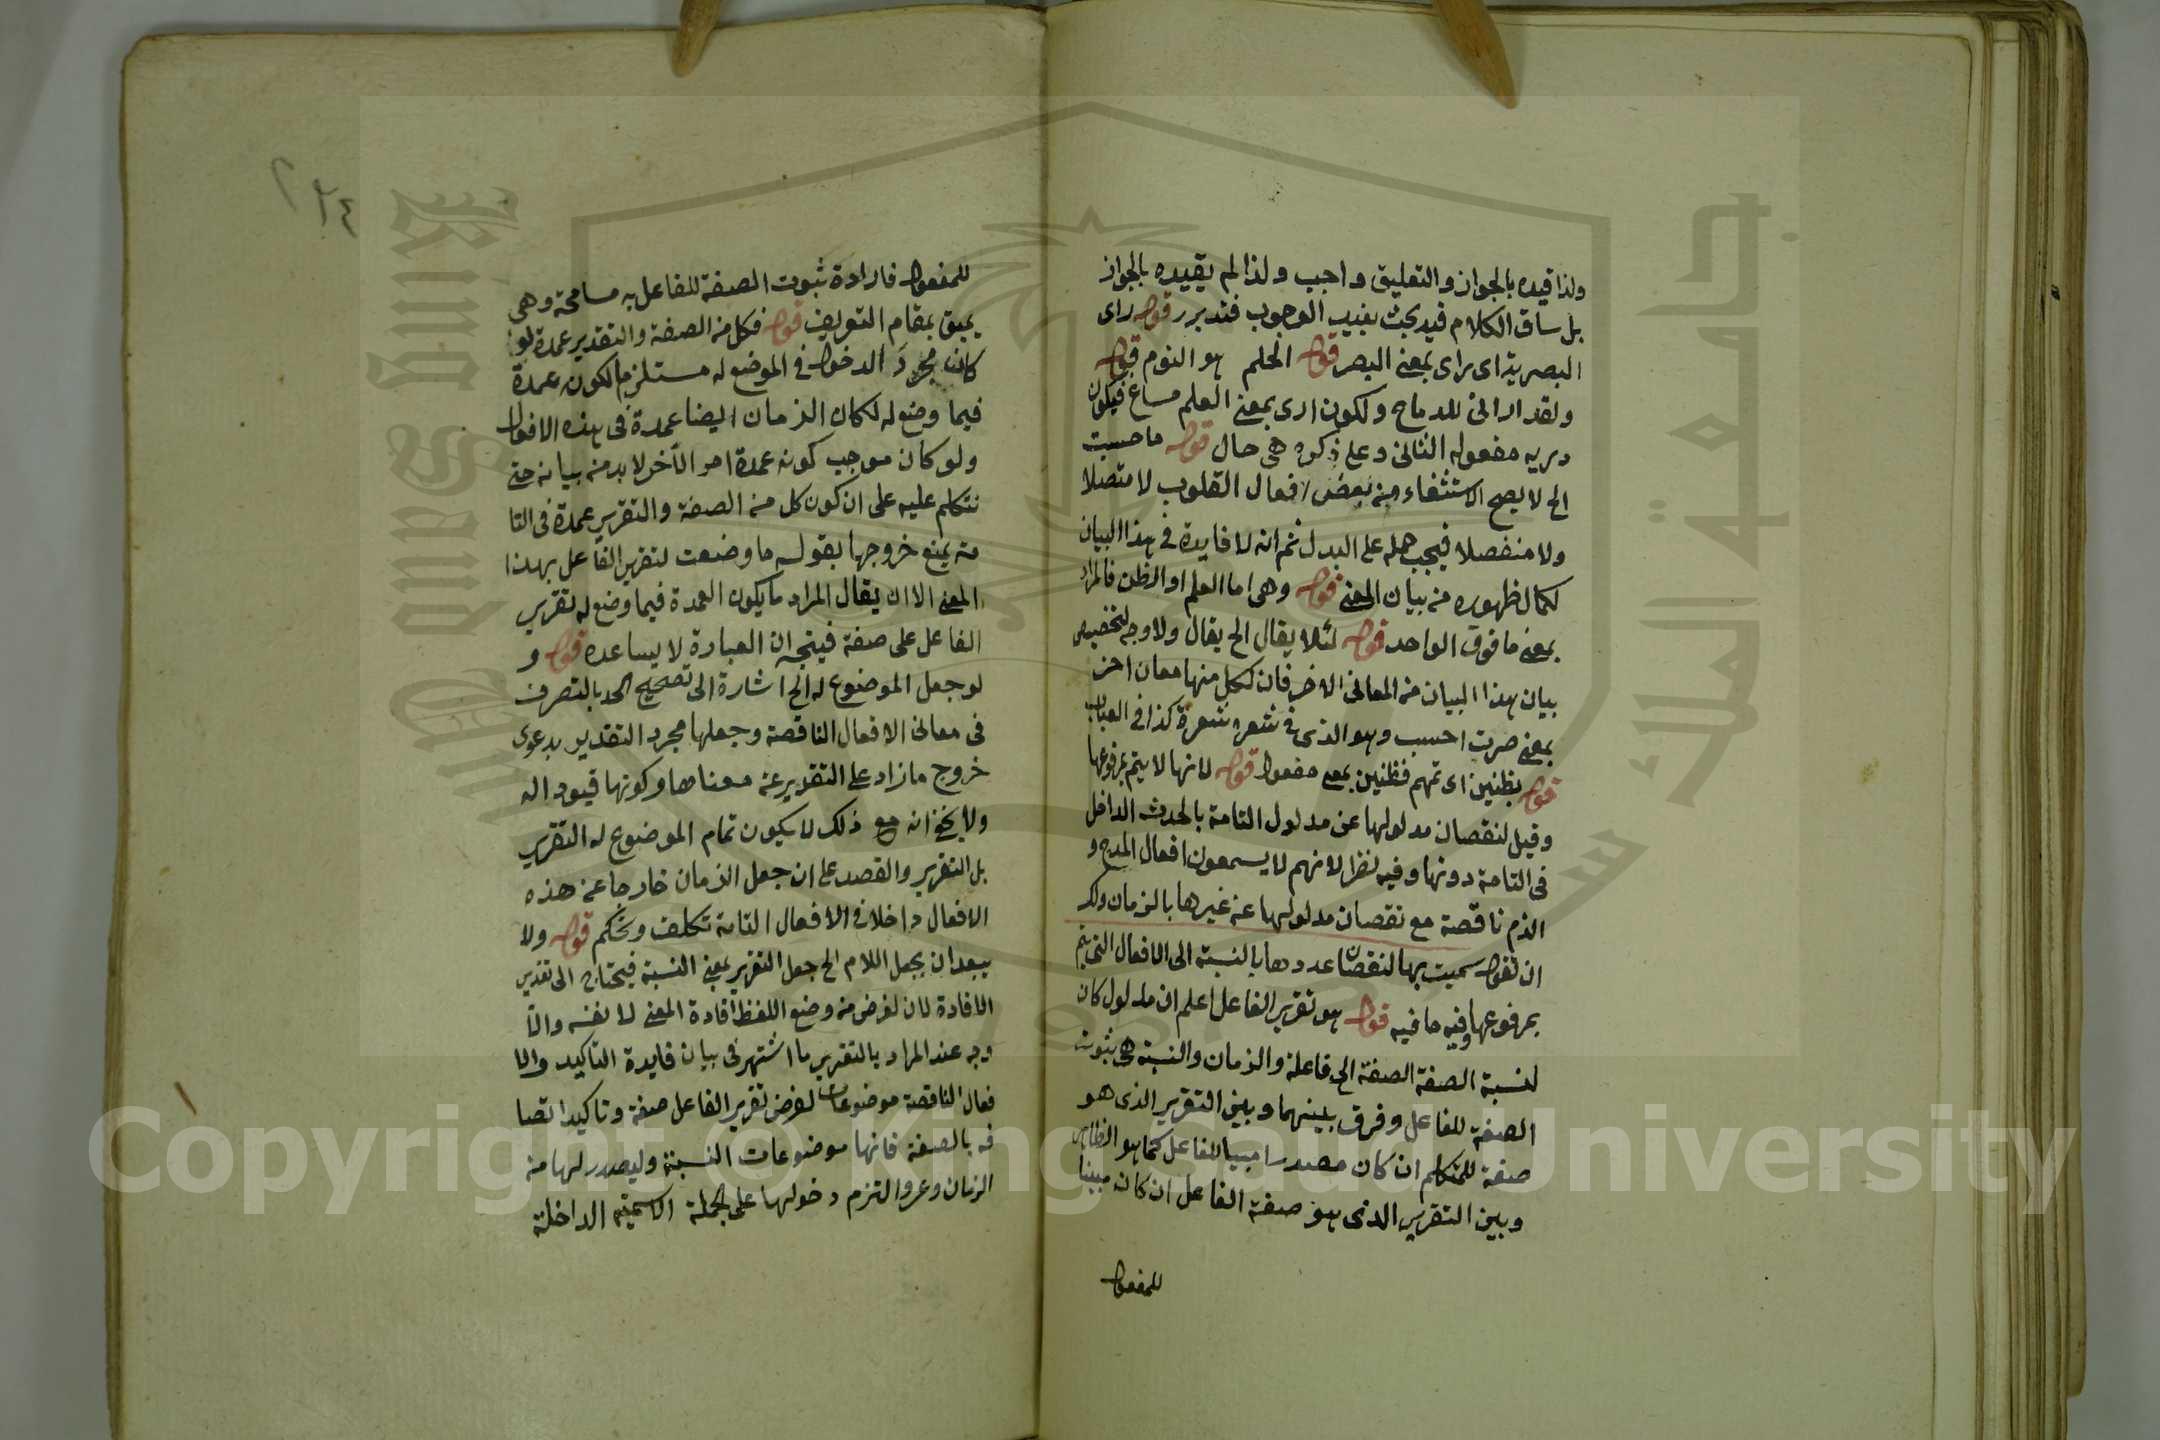 ولذا قيده بالجواز والتعليق واجب ولذا لم يقيده بالجواز
بل ساق الكلام فيه بحيث يفيد الوجوب فتدبر قوله راى
البصرية اى راى بمعنى البصر قوله الحلم هو النوم قوله
ولقد ارانى للدماح ولكون ارى بمعنى العلم مساغ فيكون
درية مفعوله الثانى وعلى ذكره هى حال قوله ما حسبت
الخ لا يصح الاستثناء من بعض لافعال القلوب لا متصلا
ولا منفصلا فيجب حمله على البدل ثم انه لا فايدة فى هذا البيان
لكمال ظهوره من بيان المعنى قوله وهى اما العلم او الظن فالمراد
بمعنى ما فوق الواحد قوله لئلا يقال الخ يقال ولا وجه لتخصيص
بيان هذا البيان من المعانى الاخر فان لكل منها معان اخر
بمعنى صرت احسب وهو الذى فى شعره شعرة كذا فى العباب
قوله بظنين اى تمهم فظنين بمعنى مفعول قوله لانها لا يتم بمرفوعها
وقيل لنقصان مدلولها عن مدلول التامة بالحدث الداخل
فى التامة دونها وفيه نظر لانهم لا يسمعون افعال المدح و
الذم ناقصة مع نقصان مدلولها عن غيرها بالزمان ولك
ان تقول سميت بها لنقصان عددها بالنسبة الى الافعال التى يتم
بمرفوعها وفيه ما فيه قوله هو تقرير الفاعل اعلم ان مدلول كان
لنسبة الصفة الصفة الى فاعله والزمان والنسبة هى ثبوت
الصفة للفاعل وفرق بينهما وبين التقرير الذى هو
صفة للمتكلم ان كان مصدرا مبنيا للفاعل كما هو الظاهر
وبين التقرير الذى هو صفة الفاعل ان كان مبنيا
للمفعول
٢٤
للمفعول فارادة ثبوت الصفة للفاعل به مسامحة وهى
يمبق بمقام التعريف قوله فكل من الصفة والتقدير عمدة لو
كان مجرد الدخول فى الموضع له مستلزم لكونه عمدة
فيما وضع له لكان الزمان ايضا عمدة فى هذه الافعال
ولو كان موجب كونه عمدة امر الآخر لا بد من بيانه حتى
نتكلم عليه على ان كون كل من الصفة والتقرير عمدة فى التا
مة يمنع خروجها بقوله ما وضعت لتقرير الفاعل بهذا
المعنى الا ان يقال المراد ما يكون العمدة فيما وضع له تقرير
الفاعل على صفة فيتجه ان العبارة لا يساعده قوله و
لو جعل الموضوع له الخ اشارة الى تصحيح الحد بالتصرف
فى معانى الافعال الناقصة وجعلها مجرد التقدير بدعوى
خروج ما زاد على التقدير عن معناها وكونها قيود اله
ولا يخفى انه مع ذلك لا يكون تمام الموضوع له التقرير
بل التقرير والقصد على ان جعل الزمان خارجا عن هذه
الافعال داخلا فى الافعال التامة تكلف وتحكم قوله ولا
يبعد ان يجعل اللام الخ جعل التقرير بمعنى النسبة فيحتاج الى تقدير
الافادة لان لغرض من وضع اللفظ افادة المعنى لا نفسه والا
وجه عند المراد بالتقرير ما اشتهر فى بيان فايدة التاكيد والا
فعال الناقصة موضوعات لغرض تقرير الفاعل صفة وتاكيد اتصا
فه بالصفة فانها موضوعات النسبة وليصدر لها من
الزمان وعرو التزم دخولها على الجملة الاسمية الداخلة
جامعة الملك سعود
King Saud University
Copyright © King Saud University